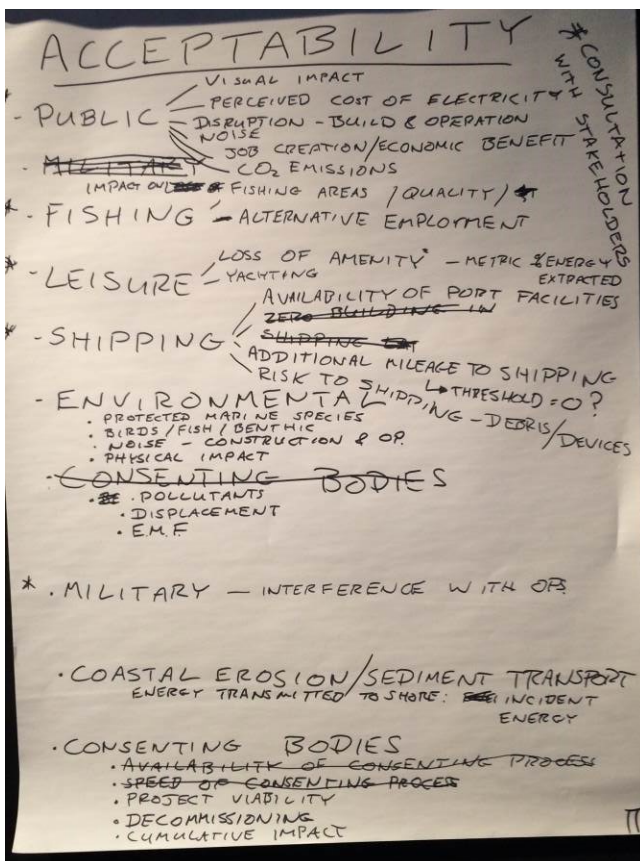 ACCEPTABILITY
* CONSULTATION
WITH STAKEHOLDERS
VISUAL IMPACT
* - PUBLIC - PERCEIVED COST OF ELECTRICITY
- DISRUPTION - BUILD & OPERATION
NOISE
JOB CREATION/ECONOMIC BENEFIT
- MILITARY CO2 EMISSIONS
IMPACT ON FISHING AREAS / QUALITY /
* - FISHING - ALTERNATIVE EMPLOYMENT
LOSS OF AMENITY - METRIC % ENERGY
EXTRACTED
* - LEISURE - YACHTING
AVAILABILITY OF PORT FACILITIES
ZERO BUILDING IN
* - SHIPPING SHIPPING
ADDITIONAL MILEAGE TO SHIPPING
↳ THRESHOLD = 0?
RISK TO SHIPPING - DEBRIS/DEVICES
- ENVIRONMENTAL
• PROTECTED MARINE SPECIES
• BIRDS / FISH / BENTHIC
• NOISE - CONSTRUCTION & OP.
• PHYSICAL IMPACT
• CONSENTING BODIES
• POLLUTANTS
• DISPLACEMENT
• E.M.F
* • MILITARY — INTERFERENCE WITH OPS.
• COASTAL EROSION/SEDIMENT TRANSPORT
ENERGY TRANSMITTED TO SHORE: INCIDENT
ENERGY
• CONSENTING BODIES
• AVAILABILITY OF CONSENTING PROCESS
• SPEED OF CONSENTING PROCESS
• PROJECT VIABILITY
• DECOMMISSIONING
• CUMULATIVE IMPACT